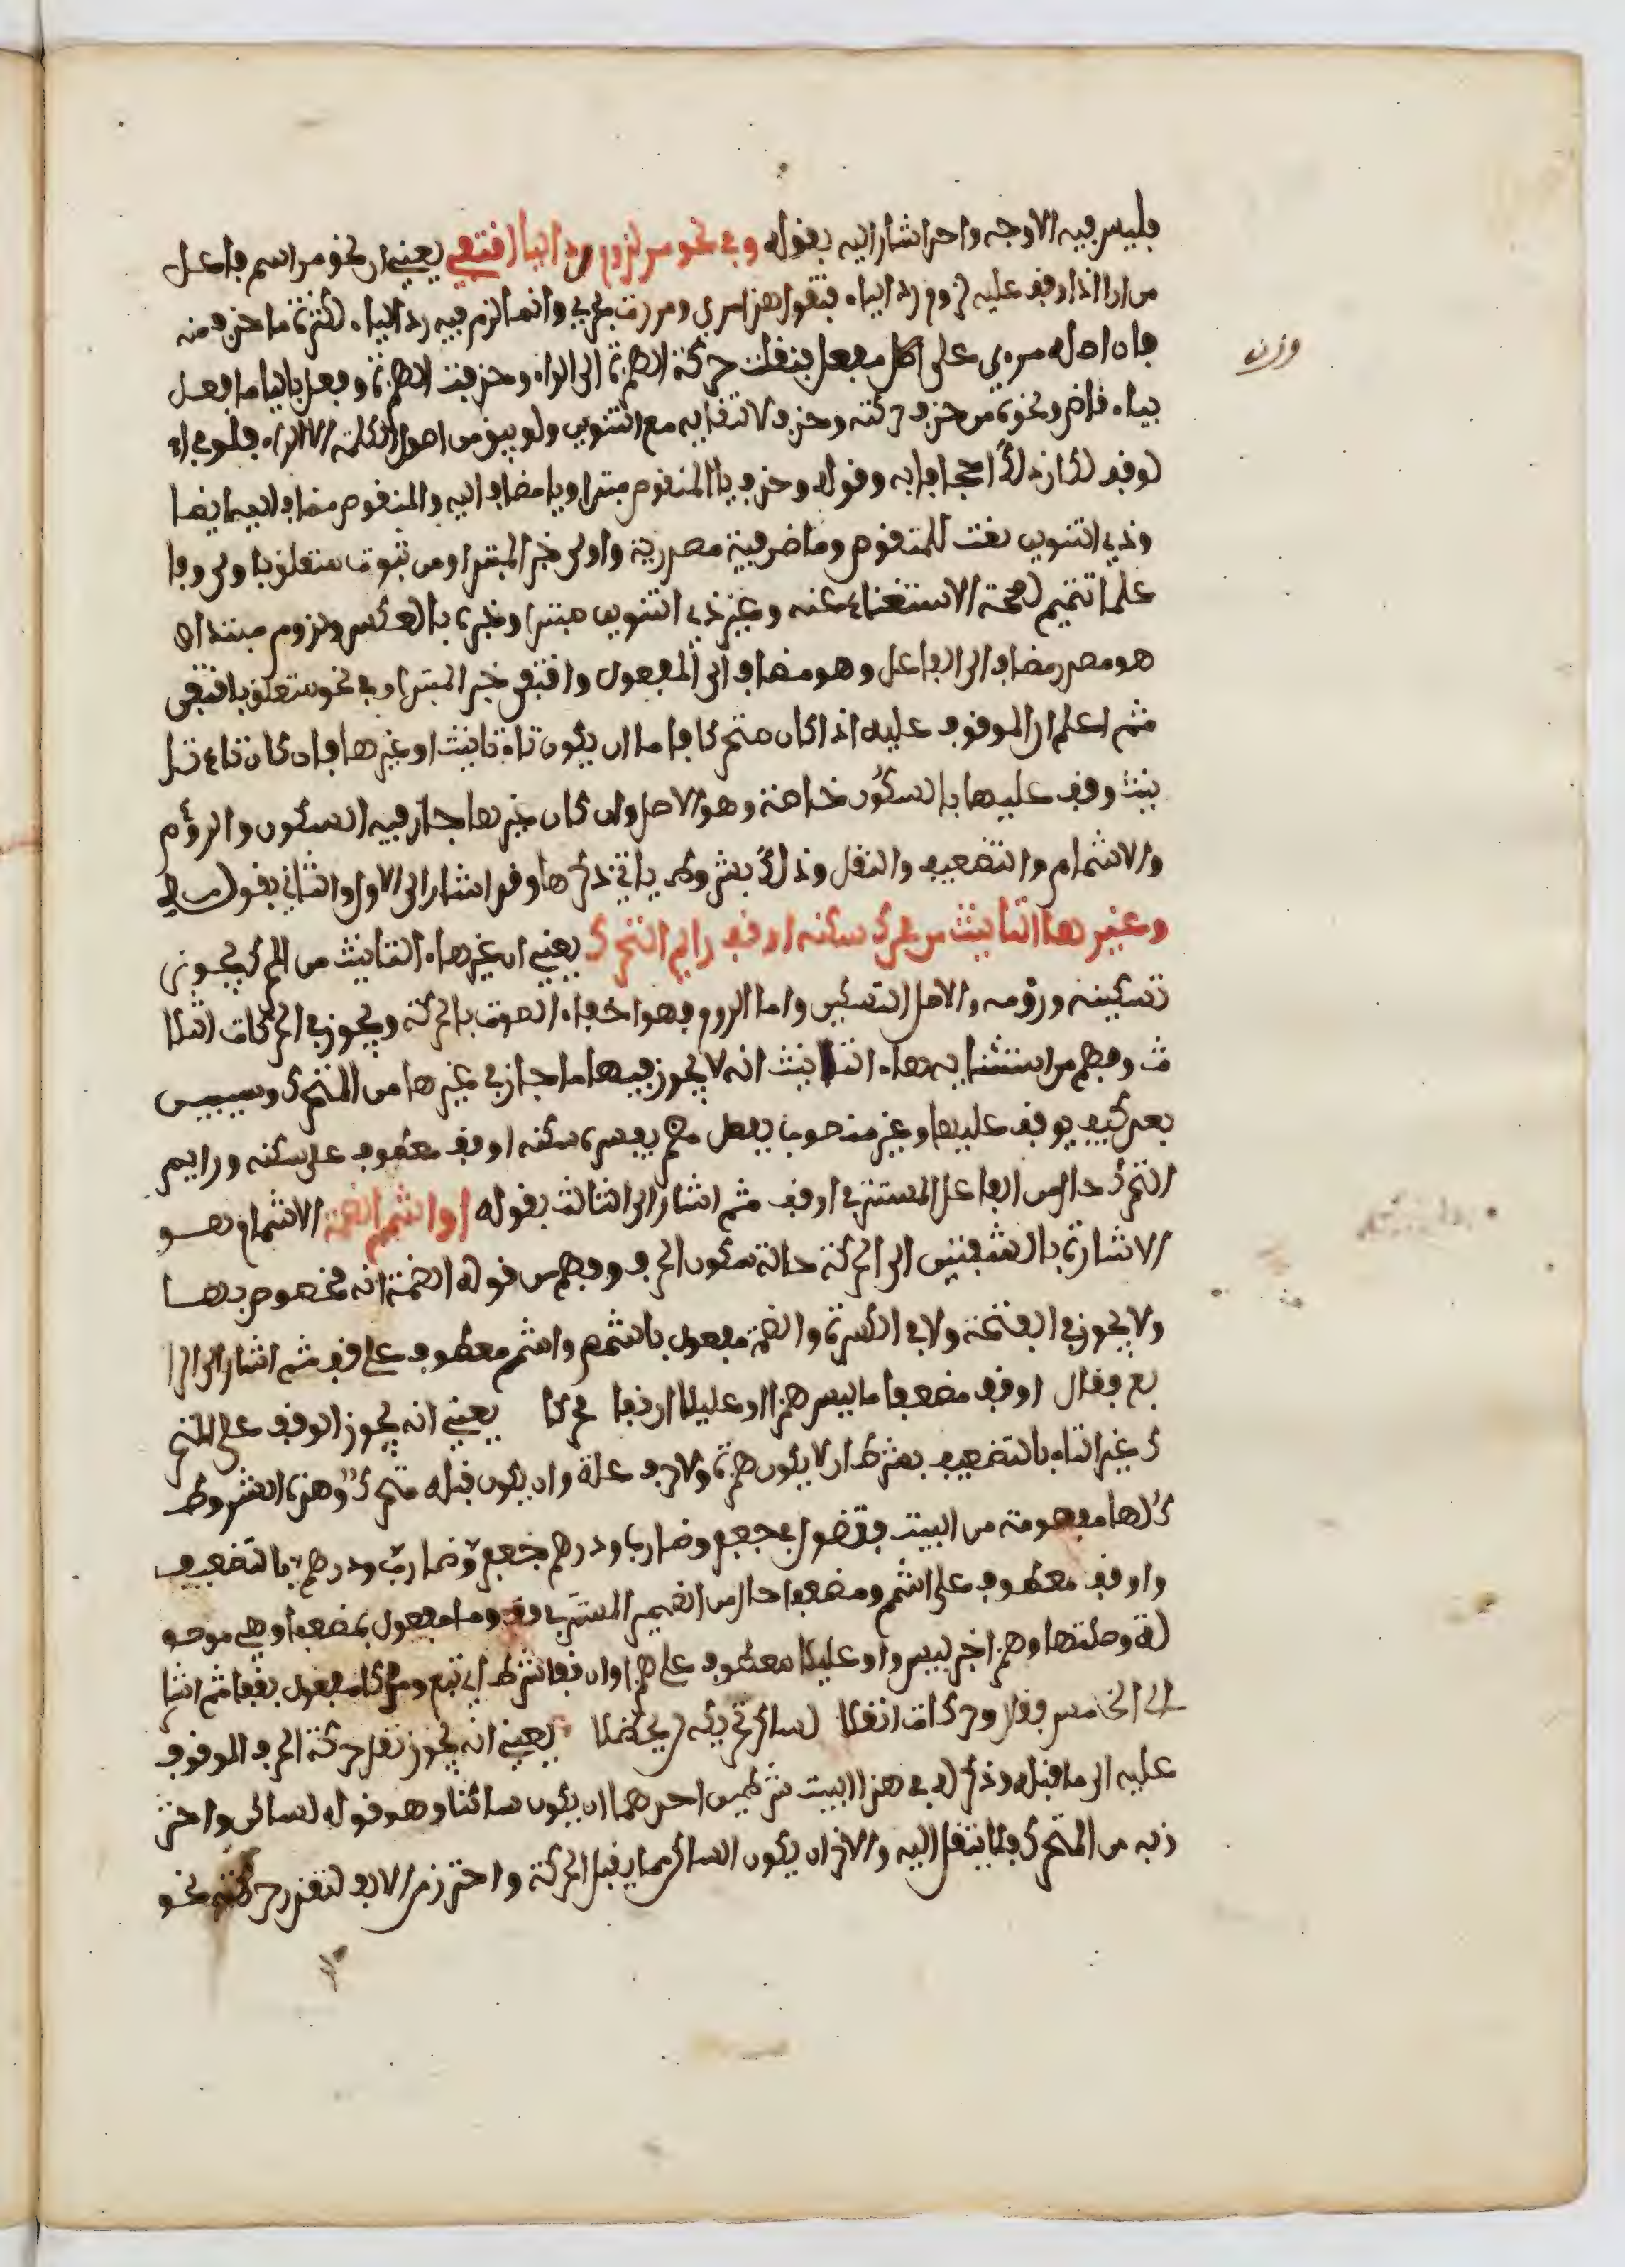 فليس فيه الاوجه واحد اشار اليه بقوله وفي نحو مر لزوم رد اليا اقتفي يعني ان نحو مر اسم فاعل
من ارا اذا وقف عليه لزوم رد الياء فتقول هذا مري ومررت بمري وانما لزم فيه رد الياء لكثرة ما حذف منه
فان اصله مرءي على مفعل فنقلت حركة الهمزة الى الراء وحذفت الهمزة وفعل بالياء ما فعل
وزن
بياء قاض ونحوه من حذف حركته وحذفه لالتقايه مع التنوين ولم يبق من اصول الكلمة الا الراء فلو
لوقف لكان ذلك اجحافا به وقوله وحذف يا المنقوص مبتدا ويا مضاف اليه والمنقوص مضاف اليه ايضا
وذي التنوين نعت للمنقوص وما ظرفية مصدرية واولى خبر المبتدا ومن ثبوت متعلق باولى وفا
علما تتميم لصحة الاستغناء عنه وغير ذي التنوين مبتدا وخبره بالعكس ولزوم مبتدا
هو مصدر مضاف الى الفاعل وهو مضاف الى المفعول واقتفي خبر المبتدا وفي نحو متعلق باقتفي
ثم اعلم ان الموقوف عليه اذا كان متحركا فاما ان يكون تاء تانيث او غيرها فان كان تاء تا
نيث وقف عليها بالسكون خاصة وهو الاصل وان كان غيرها جاز فيه السكون والروم
والاشمام والتضعيف والنقل وذلك بشروط ياتي ذكرها وقد اشار الى الاول والثاني بقوله
وغيرها التانيث من محرك سكنه او قف رايم التحرك يعني ان غيرهاء التانيث من المحرك يجوز
تسكينه ورومه والاصل التسكين واما الروم فهو اخفاء الصوت بالحركة ويجوز في الحركات الثلا
ث وفهم من استثنايه هاء التانيث انه لا يجوز فيها ما جاز في غيرها من المتحرك وسيبين
بعد كيف يوقف عليها وغير منصوب بفعل مضمر يفسره سكنه او قف معطوف على سكنه ورايم
التحرك حال من الفاعل المستتر في او قف ثم اشار الى الثالث بقوله او اشمم الضمة الاشمام هو
الاشارة بالشفتين الى الحركة حالة سكون الحرف وفهم من قوله الضمة انه مخصوص بها
ولا يجوز في الفتحة ولا في الكسرة والضمة مفعول باشمم واشمم معطوف على قف ثم اشار الى الرا
بع فقال او قف مضعفا ما ليس همزا او عليلا ان قفا محركا يعني انه يجوز الوقف على المتحر
ك غير التاء بالتضعيف بشرط ان لا يكون همزة ولا حرف علة وان يكون قبله متحرك وهذه الشروط
كلها مفهومة من البيت فتقول في جعفر وضارب ودرهم جعفر وضارب ودرهم بالتضعيف
واوقف معطوف على اشمم ومضعفا حال من الضمير المستتر في وقف وما مفعول بمضعفا وهي موصو
لة وصلتها وهمزا خبر ليس واو عليلا معطوف على همزا وان قفا شرط اي تبع ومحركا مفعول بقفا ثم اشا
ر الى الخامس فقال وحركات انقلا لساكن تحريكه لن يحظلا يعني انه يجوز نقل حركة الحرف الموقوف
عليه الى ما قبله وذكر له في هذا البيت شرطين احدهما ان يكون ساكنا وهو قوله لساكن واحتر
ز به من المتحرك فلا ينقل اليه والاخر ان يكون الساكن مما يقبل الحركة واحترز من الالف لتعذر حركته نحو